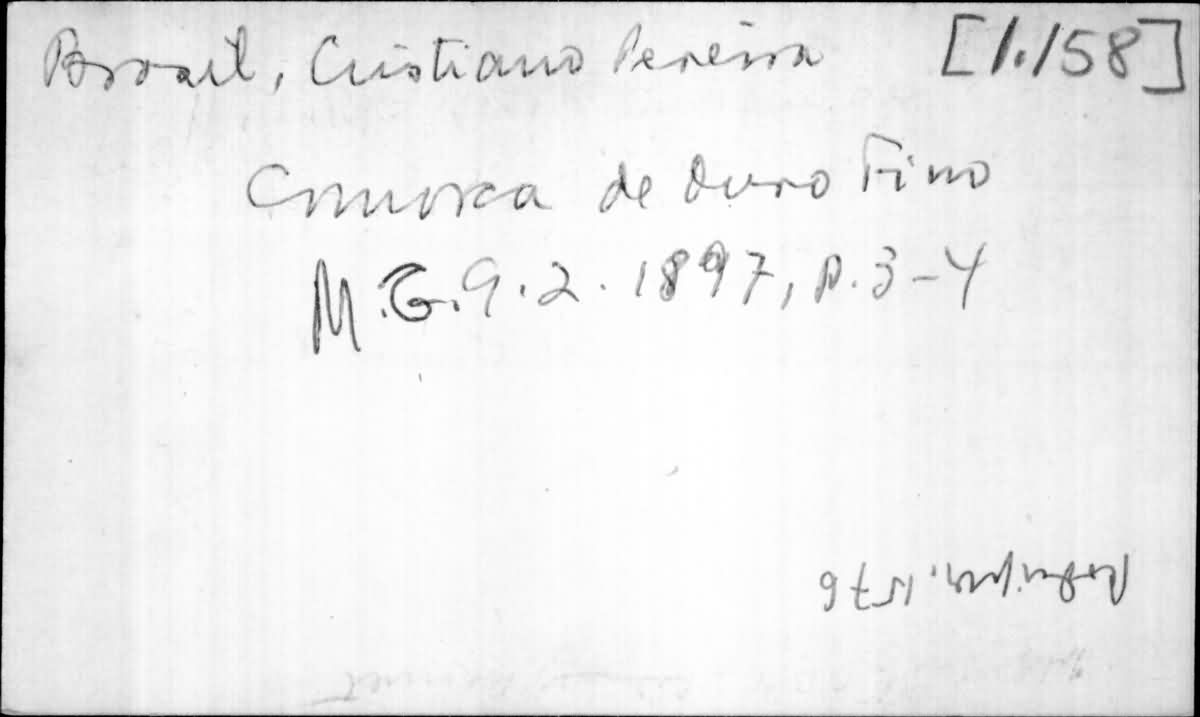 Brasil, Cristiano Pereira [1.158]
Comarca de Ouro Fino
M.G. 9.2.1897, p. 3-4